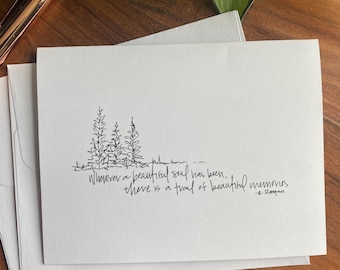 Wherever a beautiful soul has been,
there is a trail of beautiful memories
-r. Reagan